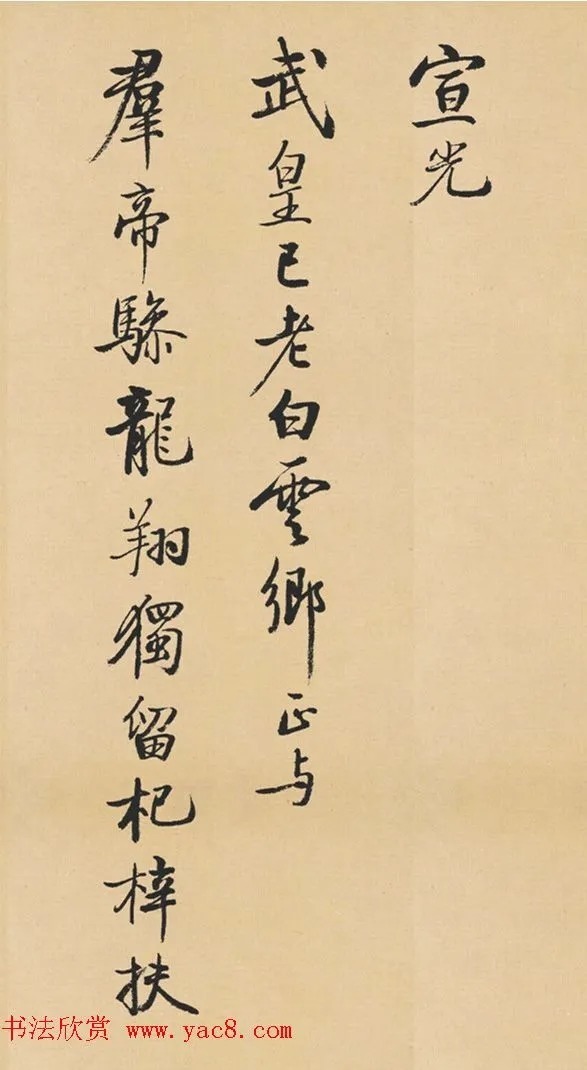 宣光
武皇已老白雲鄉正与
羣帝驂龍翔獨留杞梓扶
书法欣赏 www.yac8.com